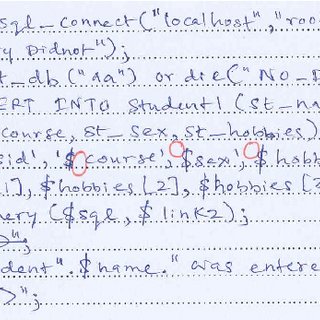 sql_connect("localhost","roo
ry Didnot");
t_db("aa") or die("No_D
ERT INTO Student1 (St_na
course, St_Sex, St_hobbies)
sid', '$course', $sex', $hobb
1], $hobbies[2], $hobbies[3
uery ($sql, $link2);
>";
dent".$name." was entere
>";